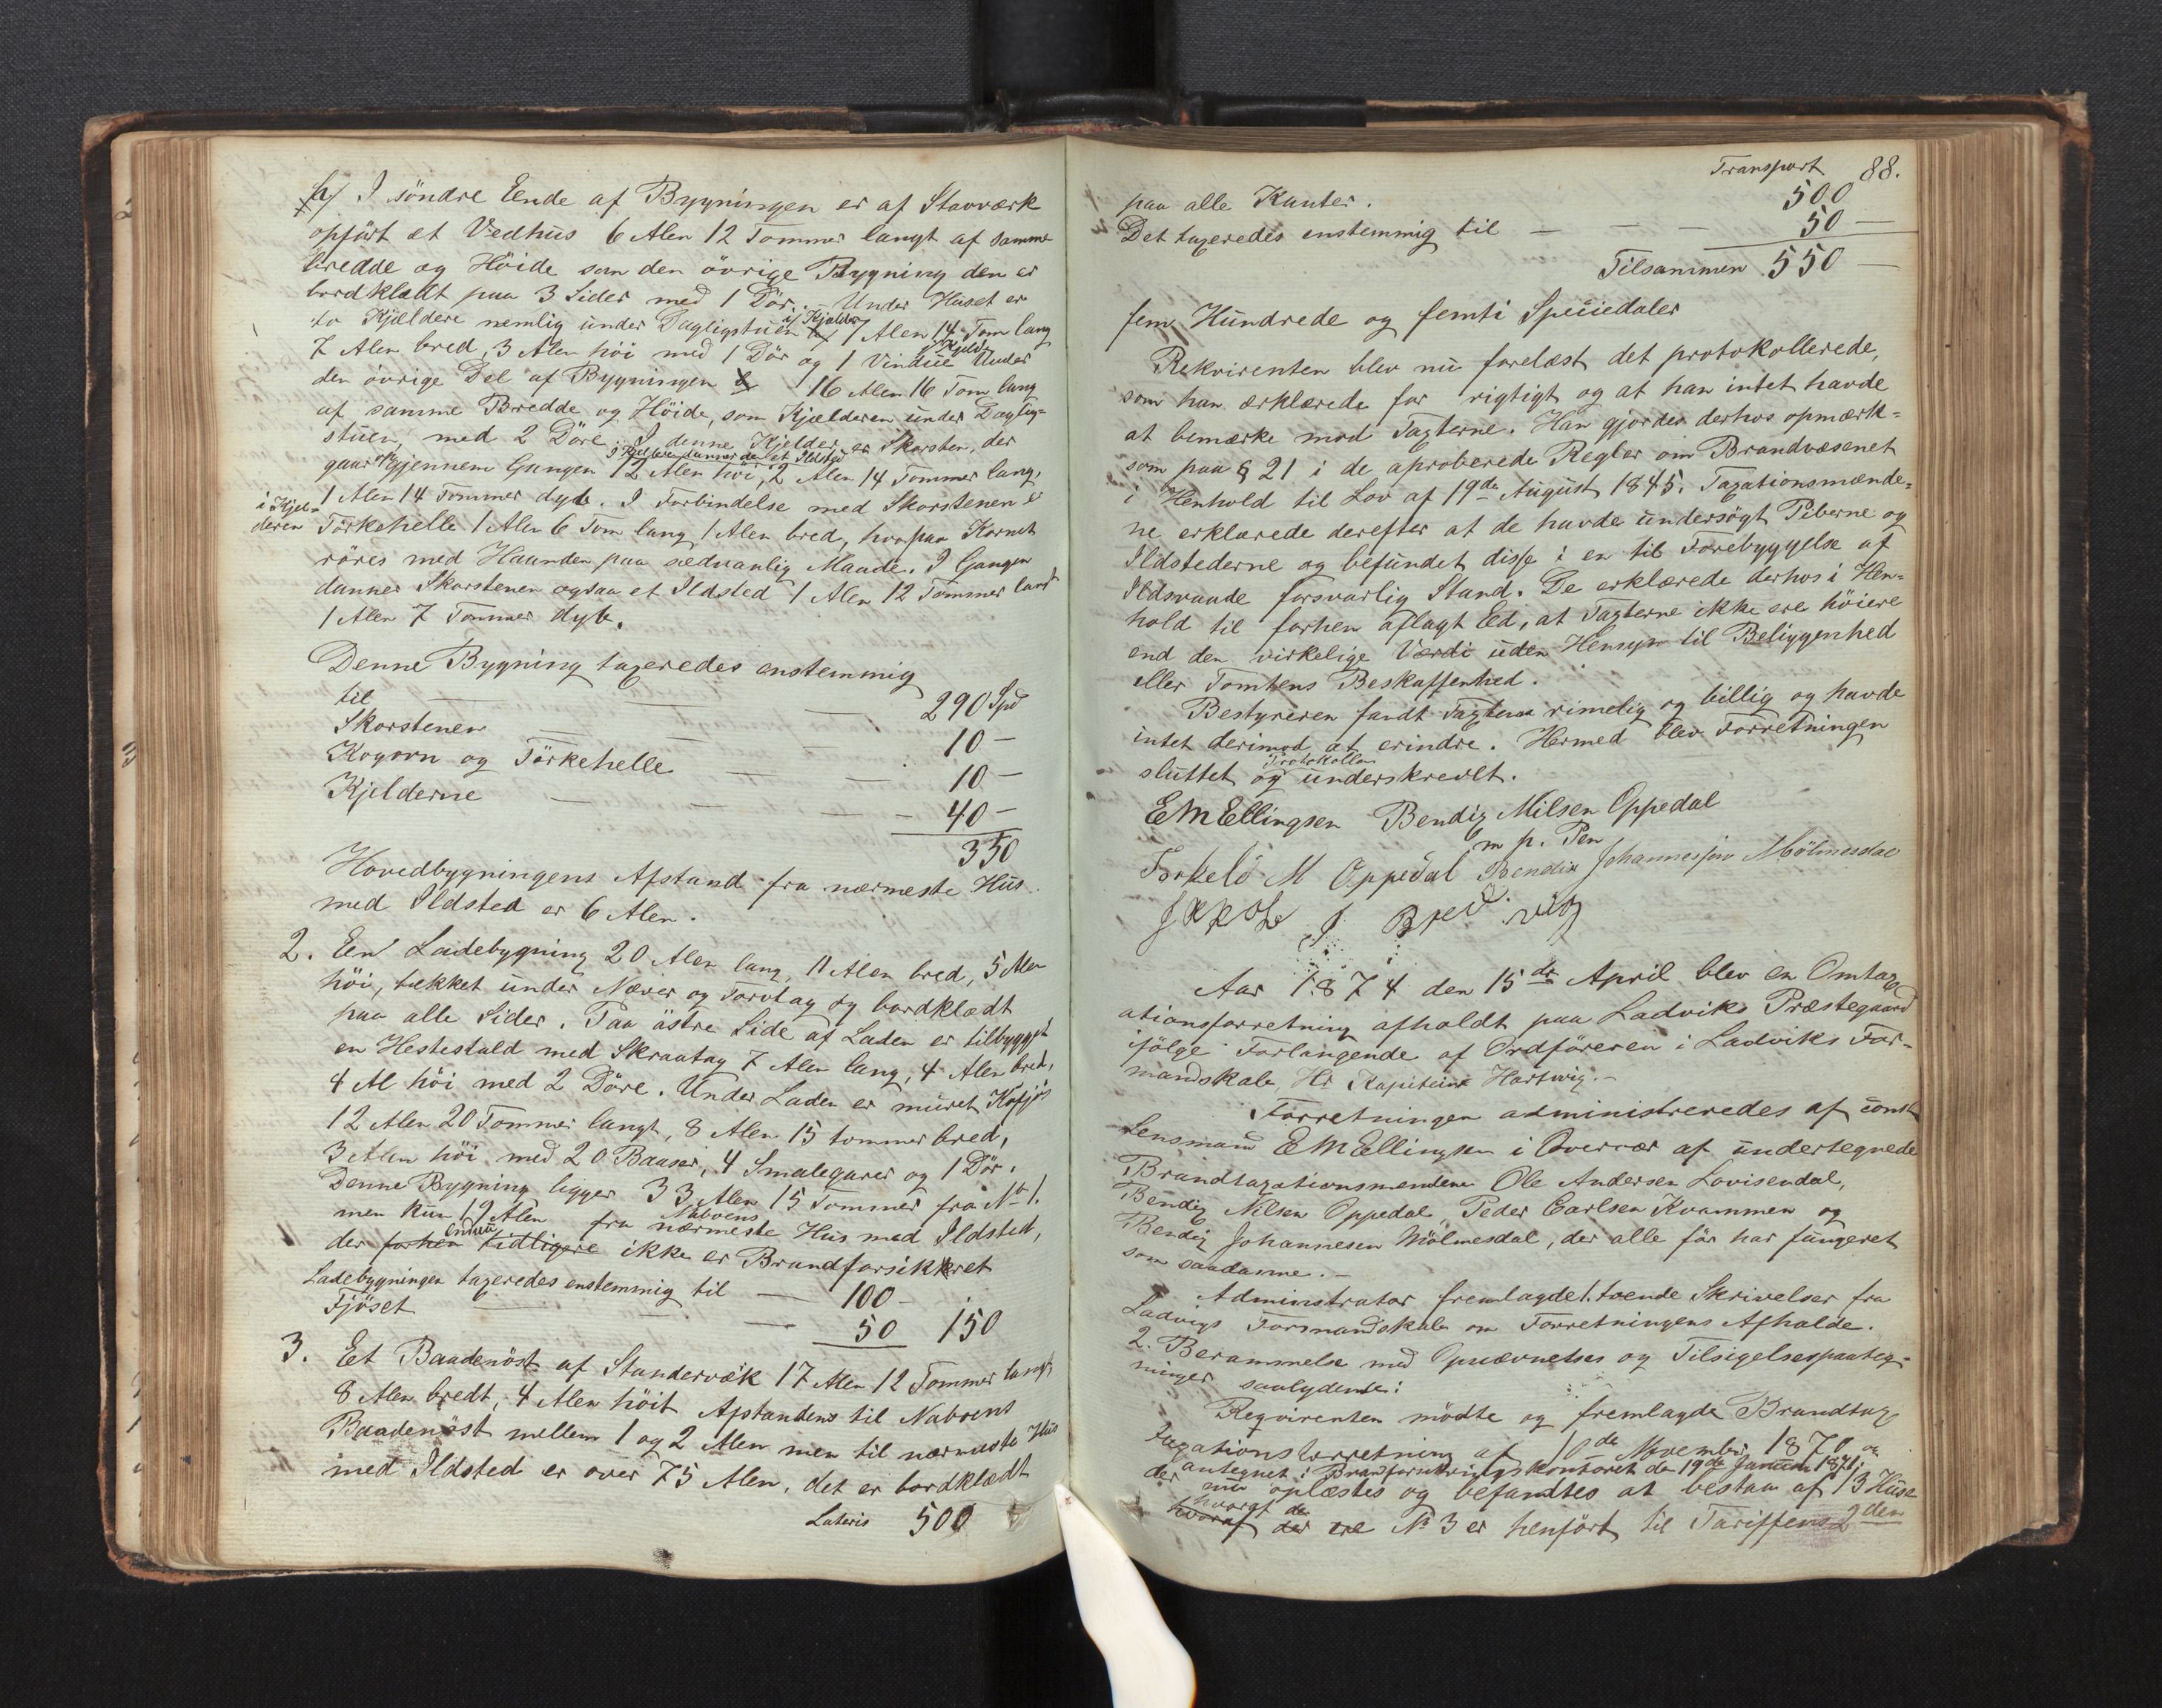 h/ I söndre Ende af Bygningen er af Stavværk
opfört et Vedhus 6 Alen 12 Tommer langt af samme
bredde og Höide som den övrige Bygning den er
bordklædt paa 3 Sider med 1 Dör. – Under Huset er
to Kjeldere nemlig under Dagligstuen 1 Kjelder 7 Alen 14 Tom lang
7 Alen bred, 3 Alen höi med 1 Dör og 1 Vindue Under
den övrige Del af Bygningen 1 Kjelder 16 Alen 16 Tom lang
af samme Bredde og Höide, som Kjælderen under Daglig-
stuen, med 2 Döre. I denne Kjelder er Skorsten, der
gaar op gjennem Gangen I Kjelderen danner den et Ildsted 12 Alen höi, 2 Alen 14 Tommer lang,
1 Alen 14 Tommer dyb. I Forbindelse med Skorstenen er
i Kjel-
deren Törkehelle 1 Alen 6 Tom lang 1 Alen bred, hvorpaa Kornet
röres med Haanden paa sædvanlig Maade. I Gangen
danner Skorstenen ogsaa et Ildsted 1 Alen 12 Tommer landt
1 Alen 7 Tommer dyb.
Denne Bygning taxeredes enstemmig
til — — — 290 Spd
Skorstenen — — — 10 –
Kogovn og Törkehelle — — 10 –
Kjelderne — — — 40 –
350
Hovedbygningens Afstand fra nærmeste Hus
med Ildsted er 6 Alen.
2. En Ladebygning 20 Alen lang, 11 Alen bred, 5 Alen
höi, tækket under Næver og Torvtag og bordklædt
paa alle Sider. Paa östre Side af Laden er tilbyggyt
en Hestestald med Skraatag 7 Alen lang, 4 Alen bred,
4 Al höi med 2 Döre. Under Laden er muret Kofjös
12 Alen 20 Tommer langt, 8 Alen 15 tommer bred,
3 Alen höi med 20 Baaser, 4 Smalegarer og 1 Dör.
Denne Bygning ligger 33 Alen 15 Tommer fra No 1.
men kun 19 Alen fra Naboens nærmeste Hus med Ildsted,
der forhen endnu tidligere ikke er Brandforsikkret
Ladebygningen taxeredes enstemmig til — 100 –
Fjöset — — 50 150
3. Et Baadenöst af Standervæk 17 Alen 12 Tommer langt,
8 Alen bredt, 4 Alen höit Afstandens til Naboens
Baadenöst mellem 1 og 2 Alen men til nærmeste Hus
med Ildsted er over 75 Alen, det er bordklædt
Lateris 500
Transport 88.
500
paa alle Kanter.
Det taxeredes enstemmig til — — — 50 —
Tilsammen 550 —
fem Hundrede og femti Speciedaler
Rekvirenten blev nu forelæst det protokollerede,
som han ærklærede for rigtigt og at han intet havde
at bemærke mod Taxterne. Han gjordes derhos opmærk-
som paa § 21 i de aproberede Regler om Brandvæsenet
i Henhold til Lov af 19de August 1845. Taxationsmænde-
ne erklærede derefter at de havde undersögt Piberne og
Ildstederne og befundet disse i en til Forebyggelse af
Ildsvaade forsvarlig Stand. De erklærede derhos i Hen-
hold til forhen aflagt Eed, at Taxterne ikke ere höiere
end den virkelige Værdi uden Hensyn til Beliggenhed
eller Tomtens Beskaffenhed.
Bestyreren fandt Taxterne rimelig og billig og havde
intet derimod at erindre. Hermed blev Forretningen
sluttet og Protokollen underskrevet.
EMEllingsen Bendix Nilsen Oppedal
m p. Pen
Torkeld M Oppedal Bendix Johannessen Mölmesdal
Jakob J Bredvig
Aar 1874 den 15de April blev en Omtax
ationsforretning afholdt paa Ladviks Præstegaard
ifölge Forlangende af Ordföreren i Ladviks For-
mandskab, Hr Kapitein Hartwig. –
Forretningen administreredes af const
Lensmand EMEllingsen i Overvær af undertegnede
Brandtaxationsmendene Ole Andersen Lovisendal,
Bendix Nilsen Oppedal Peder Carlsen Kvammen og
Bendix Johannesen Mölmesdal, der alle för har fungeret
som saadanne. –
Administrator fremlagde 1. tvende Skrivelser fra
Ladvigs Formandskab om Forretningens Afholde.
2. Berammelse med Opnævnelses og Tilsigelsespaateg-
ninger saalydende:
Reqvirenten mödte og fremlagde Brandtax
taxationsforretning af 10de November 1870 og
antegnet i Brandforsikringskontoret de 19de Januar 1871
der nu oplæstes og befandtes at bestaa af 13 Huse
hvoraf hvoraf der de ere No 3 er henfört til Tariffens 2den